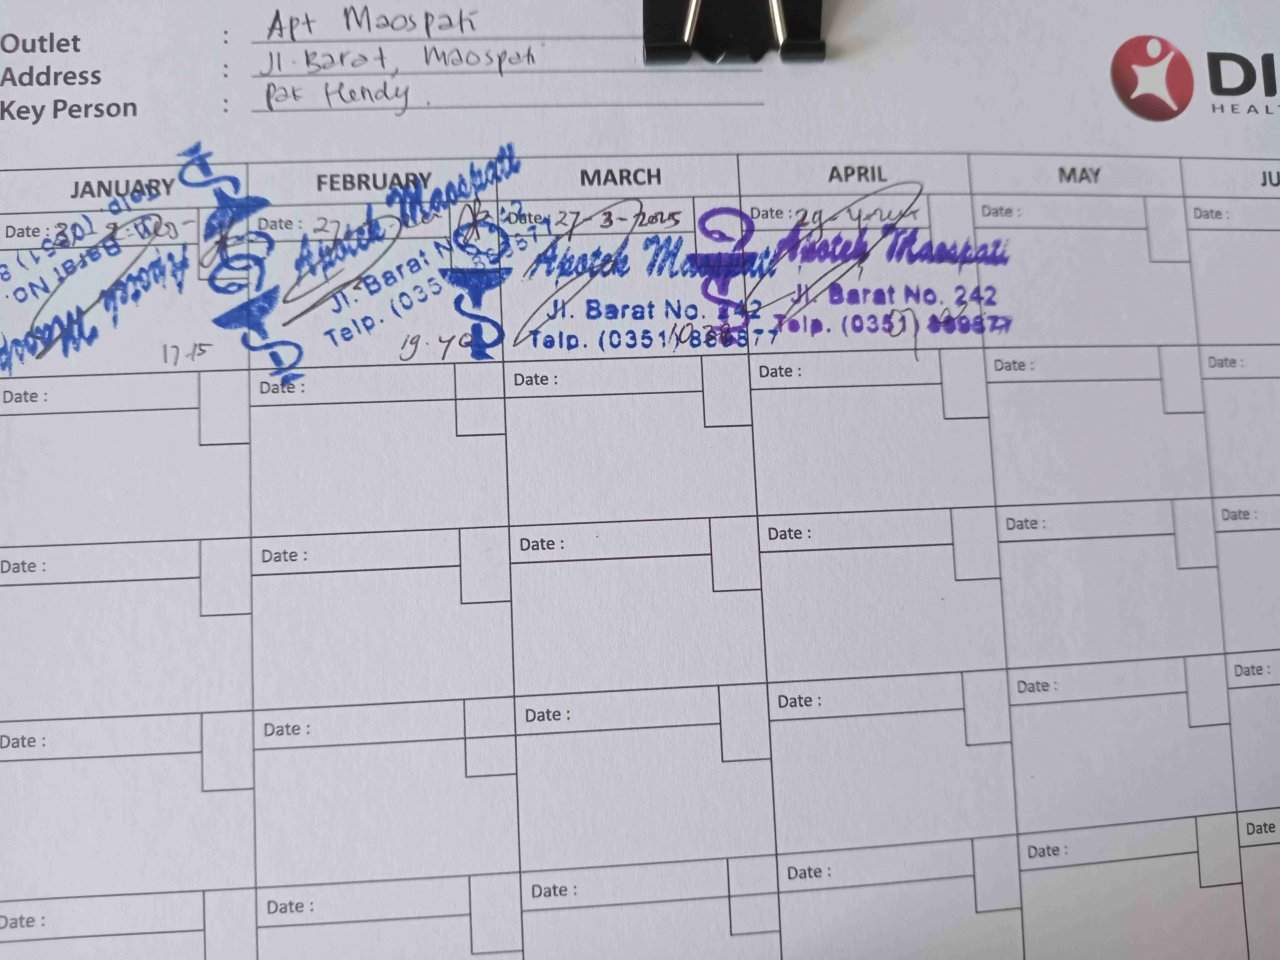 Outlet : Apt Maospati
Address : Jl. Barat, Maospati
Key Person : Pak Hendy.
DI
HEAL
JANUARY FEBRUARY MARCH APRIL MAY JU
Date : Date : 27 Date : 27-3-2025 Date : 29- Date : Date :
Apotek Maospati Apotek Maospati Apotek Maospati
Barat No. Jl. Barat Jl. Barat No. 242 Jl. Barat No. 242
Telp. Telp. (035 Telp. (0351) 869577 Telp. (0351)
17.15 19.40
Date : Date : Date : Date : Date : Date :
Date : Date : Date : Date : Date : Date :
Date : Date : Date : Date : Date : Date :
Date : Date : Date : Date : Date : Date